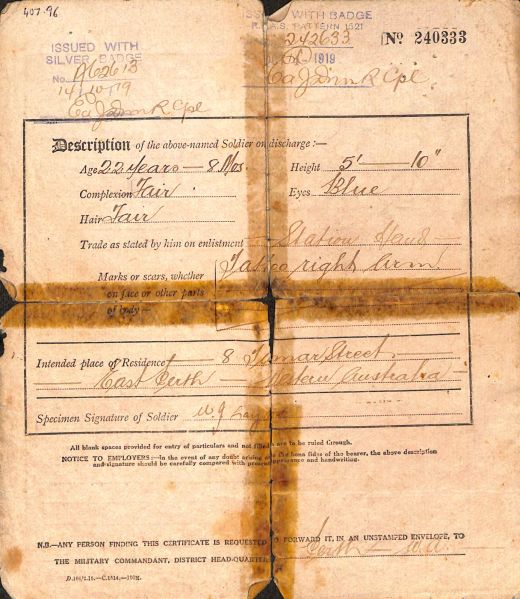 407.96
ISSUED WITH
SILVER BADGE
No.
14/10/19
Cpl
ISSUED WITH BADGE
PATTERN 1521
242633
1919
Cpl
No 240333
Description of the above-named Soldier on discharge :—
Age 22 Years — 8 Mos.
Height 5' — 10"
Complexion Fair
Eyes Blue
Hair Fair
Trade as stated by him on enlistment Station Hand
Marks or scars, whether
on face or other parts
of body—
Tattoo right Arm
Intended place of Residence 8 Tamar Street
East Perth — Western Australia
Specimen Signature of Soldier W. J.
All blank spaces provided for entry of particulars and not filled are to be ruled through.
NOTICE TO EMPLOYERS:—In the event of any doubt arising as to the bona fides of the bearer, the above description
and signature should be carefully compared with present appearance and handwriting.
N.B.—ANY PERSON FINDING THIS CERTIFICATE IS REQUESTED TO FORWARD IT, IN AN UNSTAMPED ENVELOPE, TO
THE MILITARY COMMANDANT, DISTRICT HEAD-QUARTERS Perth — W.A.